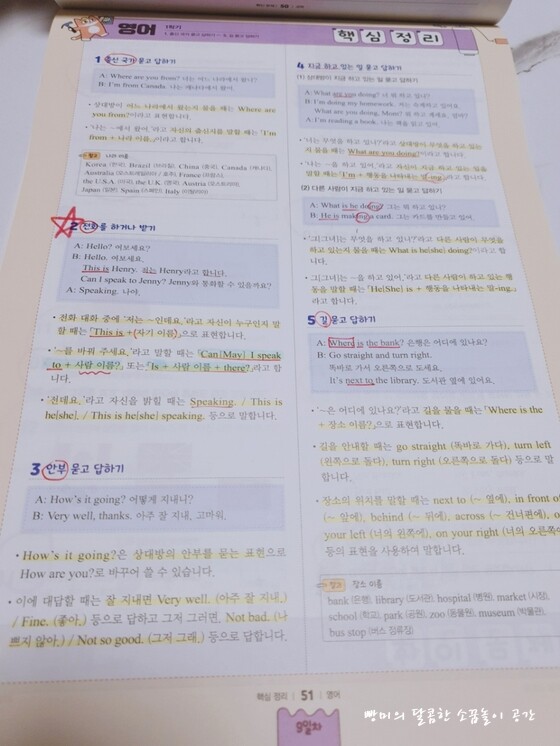 영어
1학기
핵심정리
1 출신 국가 묻고 답하기
A: Where are you from? 너는 어느 나라에서 왔니?
B: I'm from Canada. 나는 캐나다에서 왔어.
· 상대방이 어느 나라에서 왔는지 물을 때는 Where are
you from?이라고 표현합니다.
· '나는 ~에서 왔어.'라고 자신의 출신지를 말할 때는 「I'm
from + 나라 이름.」이라고 합니다.
참고 나라 이름
Korea (한국), Brazil (브라질), China (중국), Canada (캐나다),
Australia (오스트레일리아 / 호주), France (프랑스),
the U.S.A. (미국), the U.K. (영국), Austria (오스트리아),
Japan (일본), Spain (스페인), Italy (이탈리아)
2 전화를 하거나 받기
A: Hello? 여보세요?
B: Hello. 여보세요.
This is Henry. 저는 Henry라고 합니다.
Can I speak to Jenny? Jenny와 통화할 수 있을까요?
A: Speaking. 나야.
· 전화 대화 중에 '저는 ~인데요.'라고 자신이 누구인지 말
할 때는 「This is + (자기 이름).」으로 표현합니다.
· '~를 바꿔 주세요.'라고 말할 때는 「Can[May] I speak
to + 사람 이름?」 또는 「Is + 사람 이름 + there?」라고 합니
다.
· '전데요.'라고 자신을 밝힐 때는 Speaking. / This is
he[she]. / This is he[she] speaking. 등으로 말합니다.
3 안부 묻고 답하기
A: How's it going? 어떻게 지내니?
B: Very well, thanks. 아주 잘 지내. 고마워.
• How's it going?은 상대방의 안부를 묻는 표현으로
How are you?로 바꾸어 쓸 수 있습니다.
• 이에 대답할 때는 잘 지내면 Very well. (아주 잘 지내.)
/ Fine. (좋아.) 등으로 답하고 그저 그러면, Not bad. (나
쁘지 않아.) / Not so good. (그저 그래.) 등으로 답합니다.
4 지금 하고 있는 일 묻고 답하기
(1) 상대방이 지금 하고 있는 일 묻고 답하기
A: What are you doing? 너 뭐 하고 있니?
B: I'm doing my homework. 저는 숙제하고 있어요.
What are you doing, Mom? 뭐 하고 계세요, 엄마?
A: I'm reading a book. 나는 책을 읽고 있어.
· '너는 무엇을 하고 있니?'라고 상대방이 무엇을 하고 있는
지 물을 때는 What are you doing?이라고 합니다.
· '나는 ~을 하고 있어.'라고 자신이 지금 하고 있는 일을
말할 때는 「I'm + 행동을 나타내는 말-ing.」라고 합니다.
(2) 다른 사람이 지금 하고 있는 일 묻고 답하기
A: What is he doing? 그는 뭐 하고 있니?
B: He is making a card. 그는 카드를 만들고 있어.
· '그[그녀]는 무엇을 하고 있니?'라고 다른 사람이 무엇을
하고 있는지 물을 때는 What is he[she] doing?이라고 합
니다.
· '그[그녀]는 ~을 하고 있어.'라고 다른 사람이 하고 있는 행
동을 말할 때는 「He[She] is + 행동을 나타내는 말-ing.」
라고 합니다.
5 길 묻고 답하기
A: Where is the bank? 은행은 어디에 있나요?
B: Go straight and turn right.
똑바로 가서 오른쪽으로 도세요.
It's next to the library. 도서관 옆에 있어요.
· '~은 어디에 있나요?'라고 길을 물을 때는 「Where is the
+ 장소 이름?」으로 표현합니다.
· 길을 안내할 때는 go straight (똑바로 가다), turn left
(왼쪽으로 돌다), turn right (오른쪽으로 돌다) 등으로 말
합니다.
· 장소의 위치를 말할 때는 next to (~ 옆에), in front of
(~ 앞에), behind (~ 뒤에), across (~ 건너편에), on
your left (너의 왼쪽에), on your right (너의 오른쪽에)
등의 표현을 사용하여 말합니다.
참고 장소 이름
bank (은행), library (도서관), hospital (병원), market (시장),
school (학교), park (공원), zoo (동물원), museum (박물관),
bus stop (버스 정류장)
핵심 정리 | 51 | 영어
9일차
빵미의 달콤한 소꿉놀이 공간